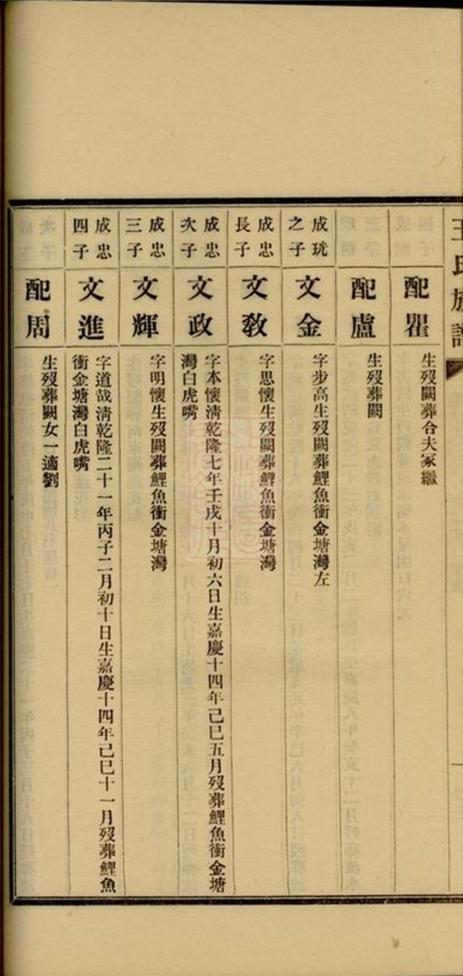 王氏族譜
配瞿
生歿闕葬合夫冢繼
配盧
生歿葬闕
成珖之子
文金
字步高生歿闕葬鯉魚衝金塘灣左
成忠長子
文敎
字思懷生歿闕葬鯉魚衝金塘灣
成忠次子
文政
字本懷淸乾隆七年壬戌十月初六日生嘉慶十四年己巳五月歿葬鯉魚衝金塘
灣白虎嘴
成忠三子
文輝
字明懷生歿闕葬鯉魚衝金塘灣
成忠四子
文進
字道哉淸乾隆二十一年丙子二月初十日生嘉慶十四年己巳十一月歿葬鯉魚
衝金塘灣白虎嘴
配周
生歿葬闕女一適劉